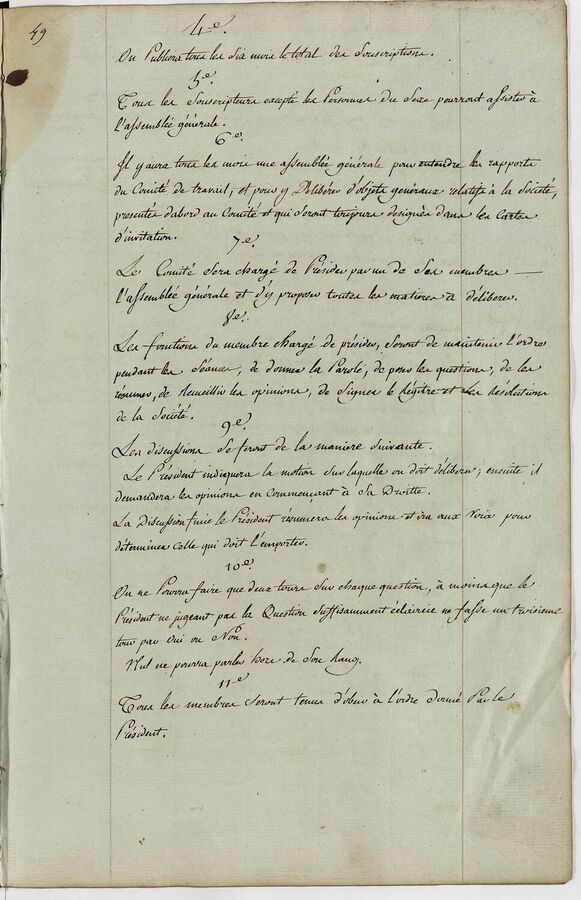 49
4e.
On Publiera tous les Six mois le total des Souscriptions.
5e.
Tous les Souscripteurs excepté les Personnes du Sexe pourront assister à
l'assemblée générale.
6e.
Il y aura tous les mois une assemblée générale pour entendre les rapports
du Comité de travail, et pour y Délibérer d'objets généraux relatifs à la Société,
presentés dabord au Comité et qui Seront toujours designés dans les Cartes
d'invitation.
7e.
Le Comité Sera chargé de Présider par un de Ses membres
l'assemblée générale et d'y proposer toutes les matieres à délibérer.
8e.
Les fonctions du membre chargé de présider, Seront de maintenir l'ordre
pendant les Séances, de donner la Parole, de poser les questions, de les
résumer, de Recueillir les opinions, de Signer le Régitre et les Résolutions
de la Société.
9e.
Les discussions Se feront de la maniere Suivante.
Le Président indiquera la motion Sur laquelle on doit délibérer; ensuite il
demandera les opinions en Commençant à Sa Droitte.
La Discussion finie le Président résumera les opinions et ira aux Voix pour
déterminer Celle qui doit l'emporter.
10e.
On ne Pourra faire que deux tours Sur chaque question, à moins que le
Président ne jugeant pas la Question Suffisamment éclaircie ne fasse un troisieme
tour par Oui ou Non.
Nul ne pourra parler hors de Son Rang.
11e
Tous les membres Seront tenus d'obéir à l'ordre donné Par le
Président.